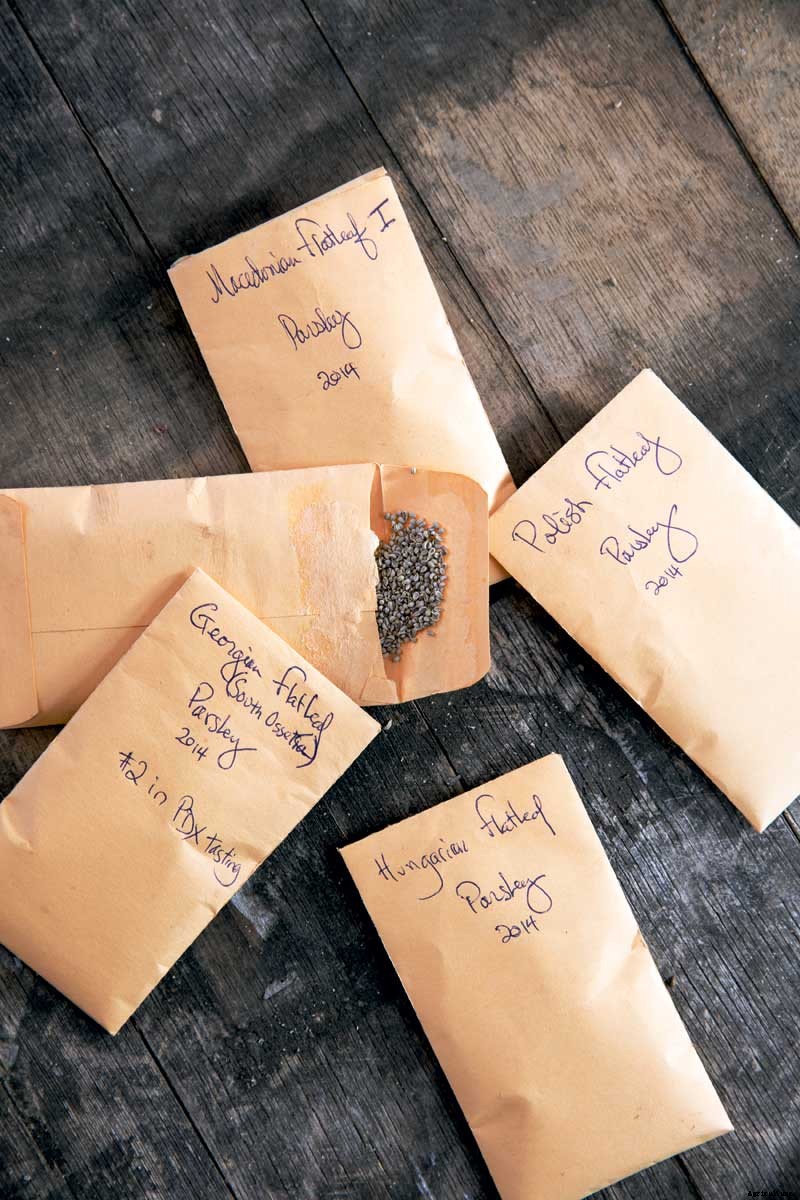 Macedonian Flatleaf I
Parsley
2014
Polish Flatleaf
Parsley
2014
Georgian Flatleaf
(South Ossetia)
Parsley
2014
#2 in PDX tasting
Hungarian Flatleaf
Parsley
2014